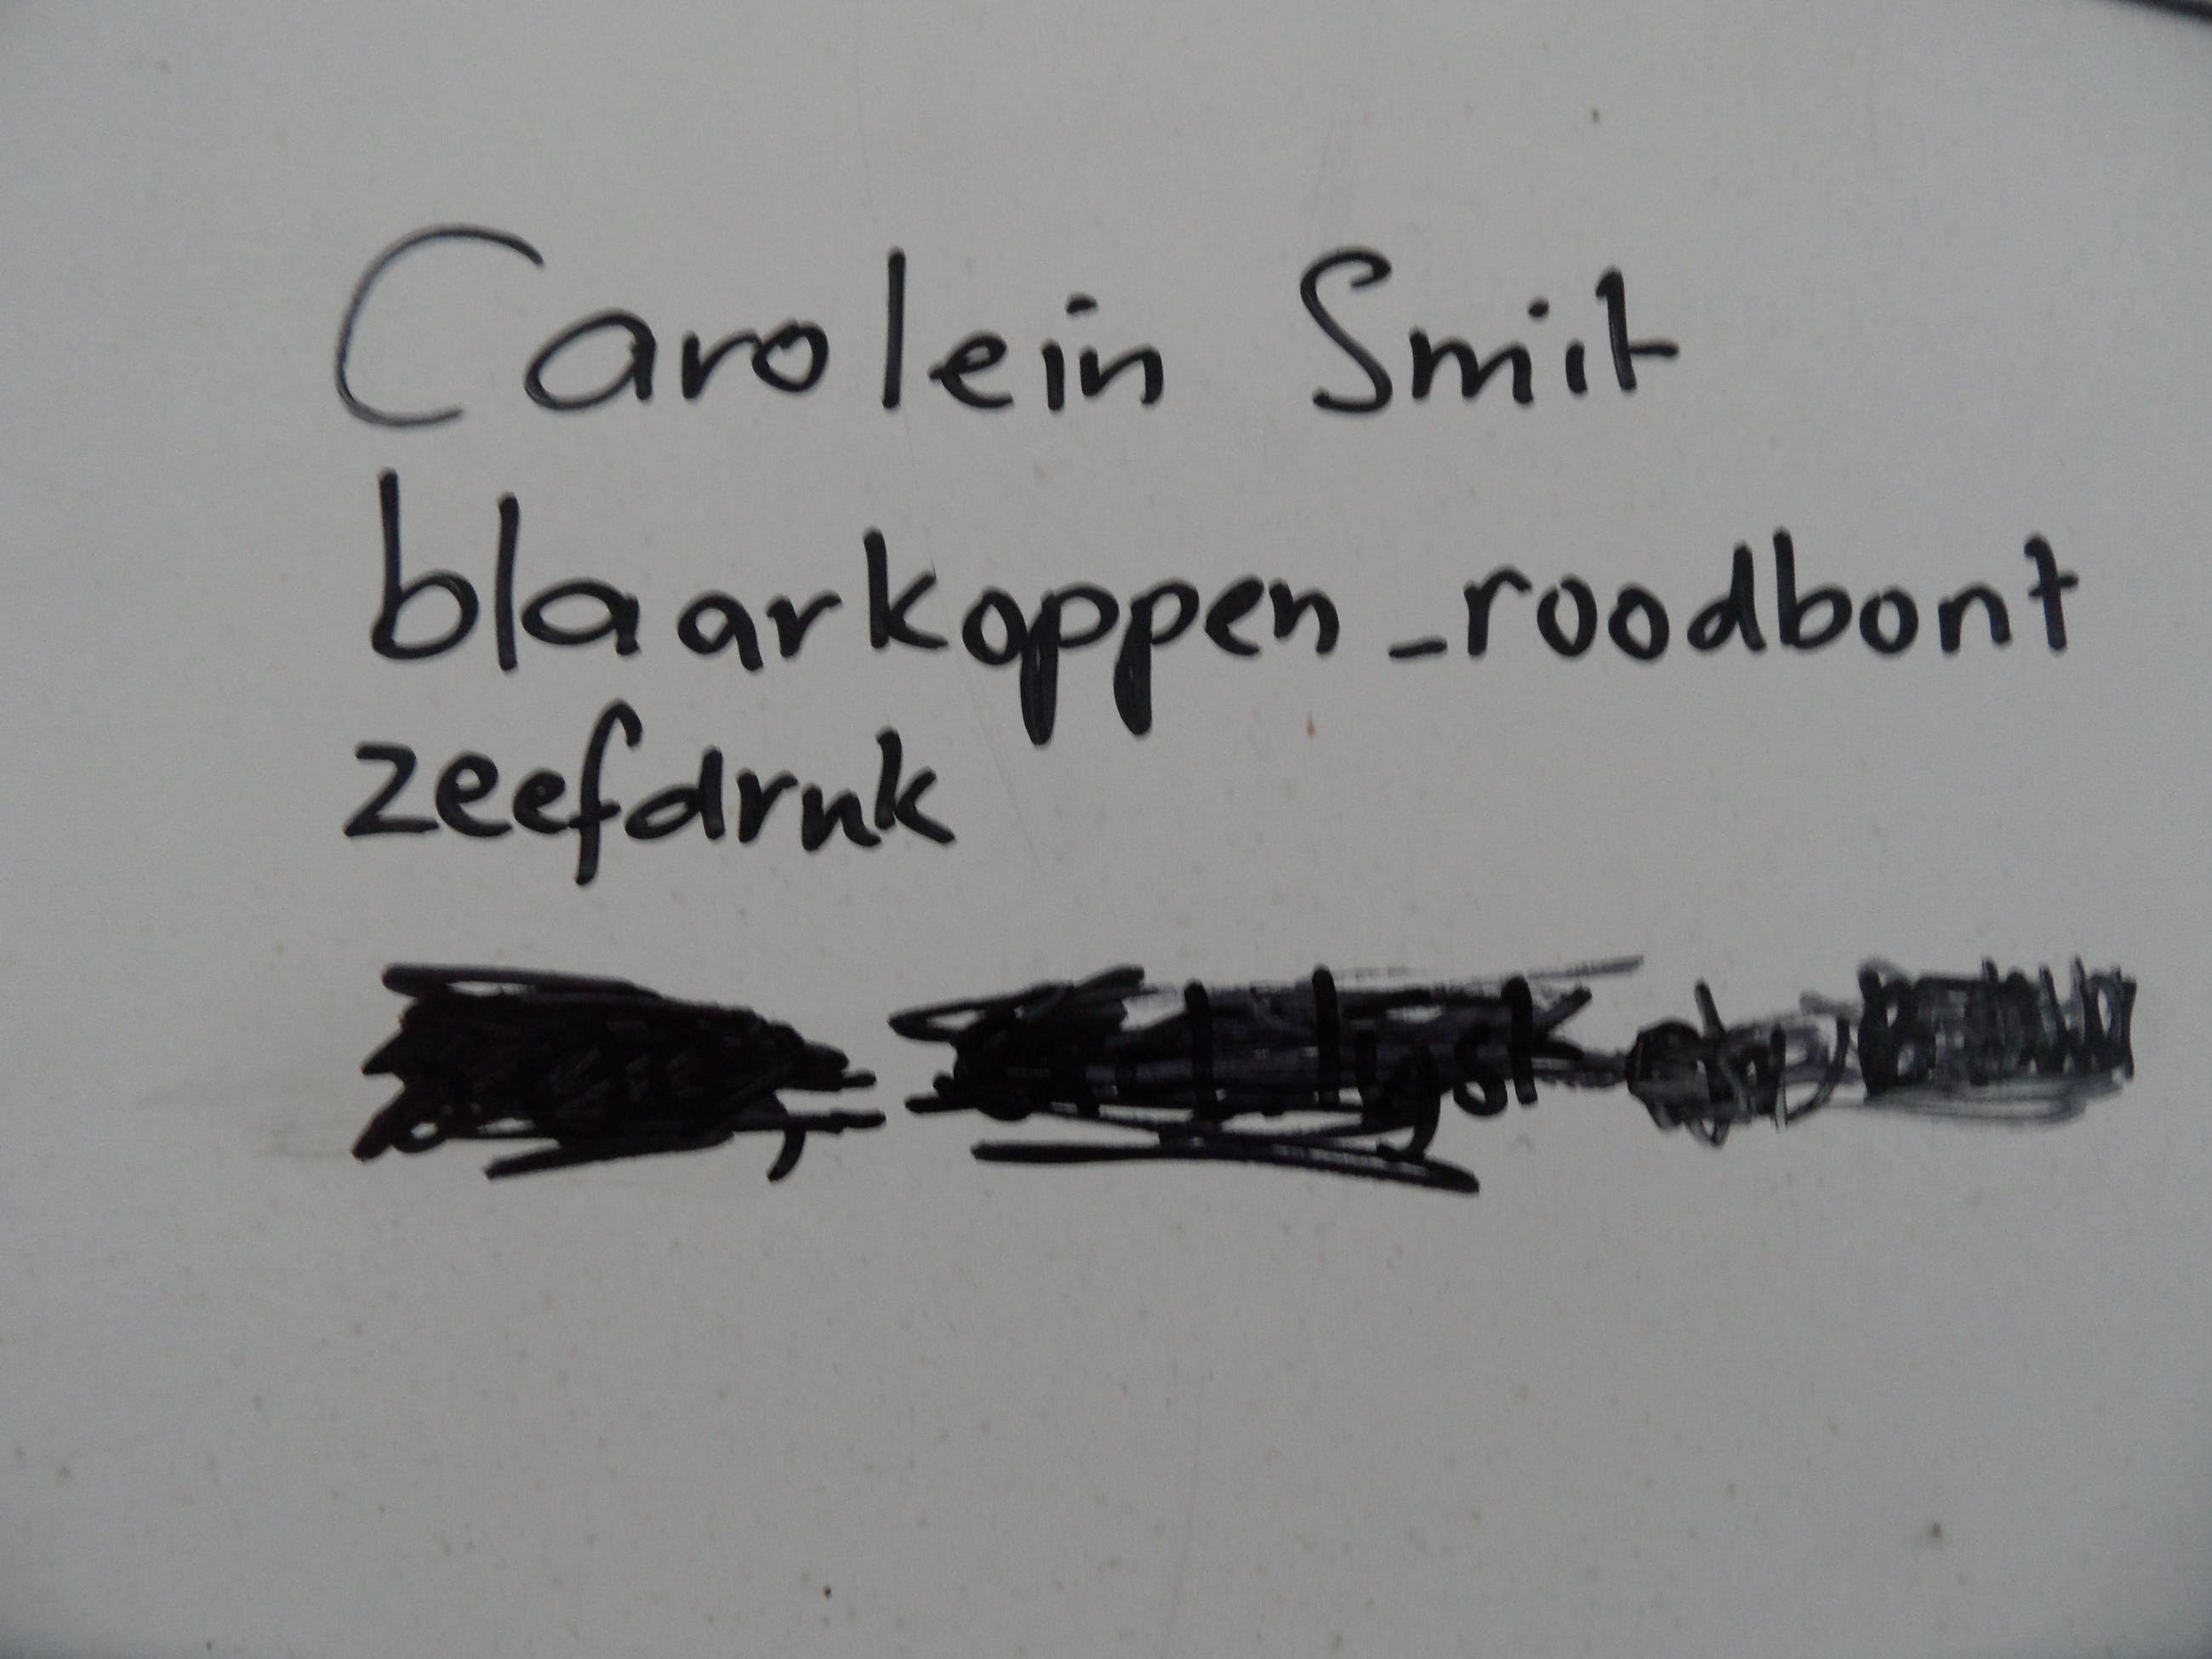 Carolein Smit
blaarkoppen_roodbont
zeefdruk